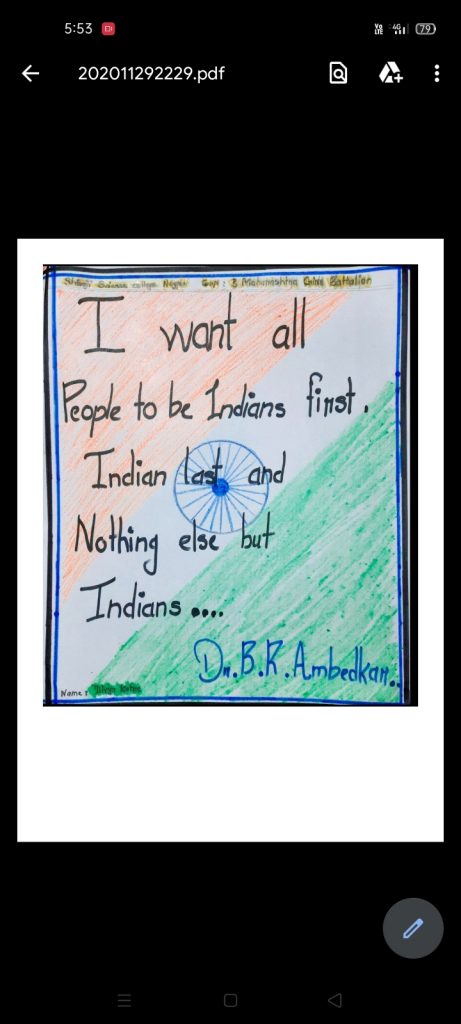 5:53
Vo LTE 4G 79
202011292229.pdf
Shivaji Science college Nagpur 3 Maharashtra Battalion
I want all
People to be Indians first.
Indian last and
Nothing else but
Indians ....
Dr. B. R. Ambedkar..
Name :